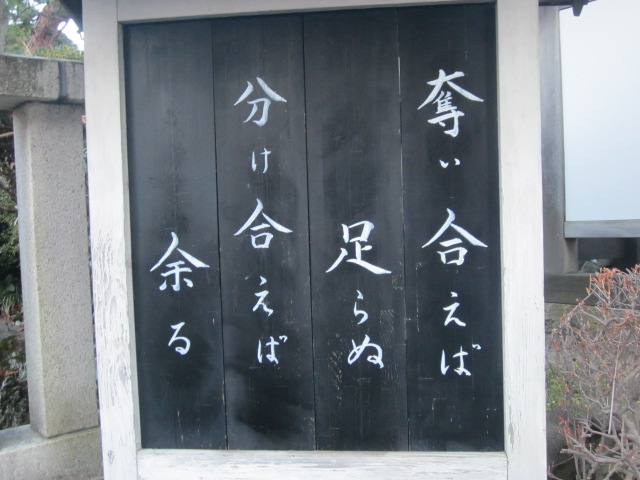 奪い合えば
足らぬ
分け合えば
余る